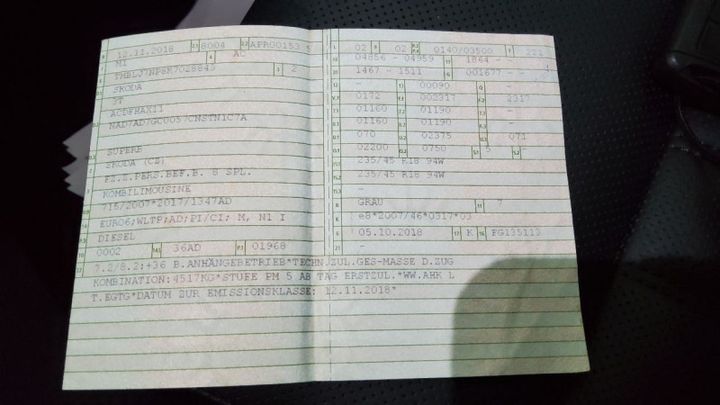 12.11.2018 8004 APR00153 5
M1 AC
TMBLJ7NP8K7028843 2
SKODA
3T
ACDFHAX11
NAD7AD7GCU057CNSTN1C7A
SUPERB
SKODA (CZ)
FZ.Z.PERS.BEF.B. 8 SPL.
KOMBILIMOUSINE
715/2007*2017/1347AD
EURO6;WLTP;AD;PI/CI; M, N1 I
DIESEL
0002 36AD 01968
02 02 0140/03500 221
04856 - 04959 1864 -
1467 - 1511 001677 - -
- 00090 -
0172 002317 2317
01160 01190 -
01160 01190 -
070 02375 071
02200 0750 5 -
235/45 R18 94W
235/45 R18 94W
-
GRAU 7
e8*2007/46*0317*03
05.10.2018 K FG135113
-
7.2/8.2:+36 B.ANHÄNGEBETRIEB*TECHN.ZUL.GES-MASSE D.ZUG
KOMBINATION:4517KG*STUFE PM 5 AB TAG ERSTZUL.*WW.AHK L
T.EGTG*DATUM ZUR EMISSIONKLASSE: 12.11.2018*